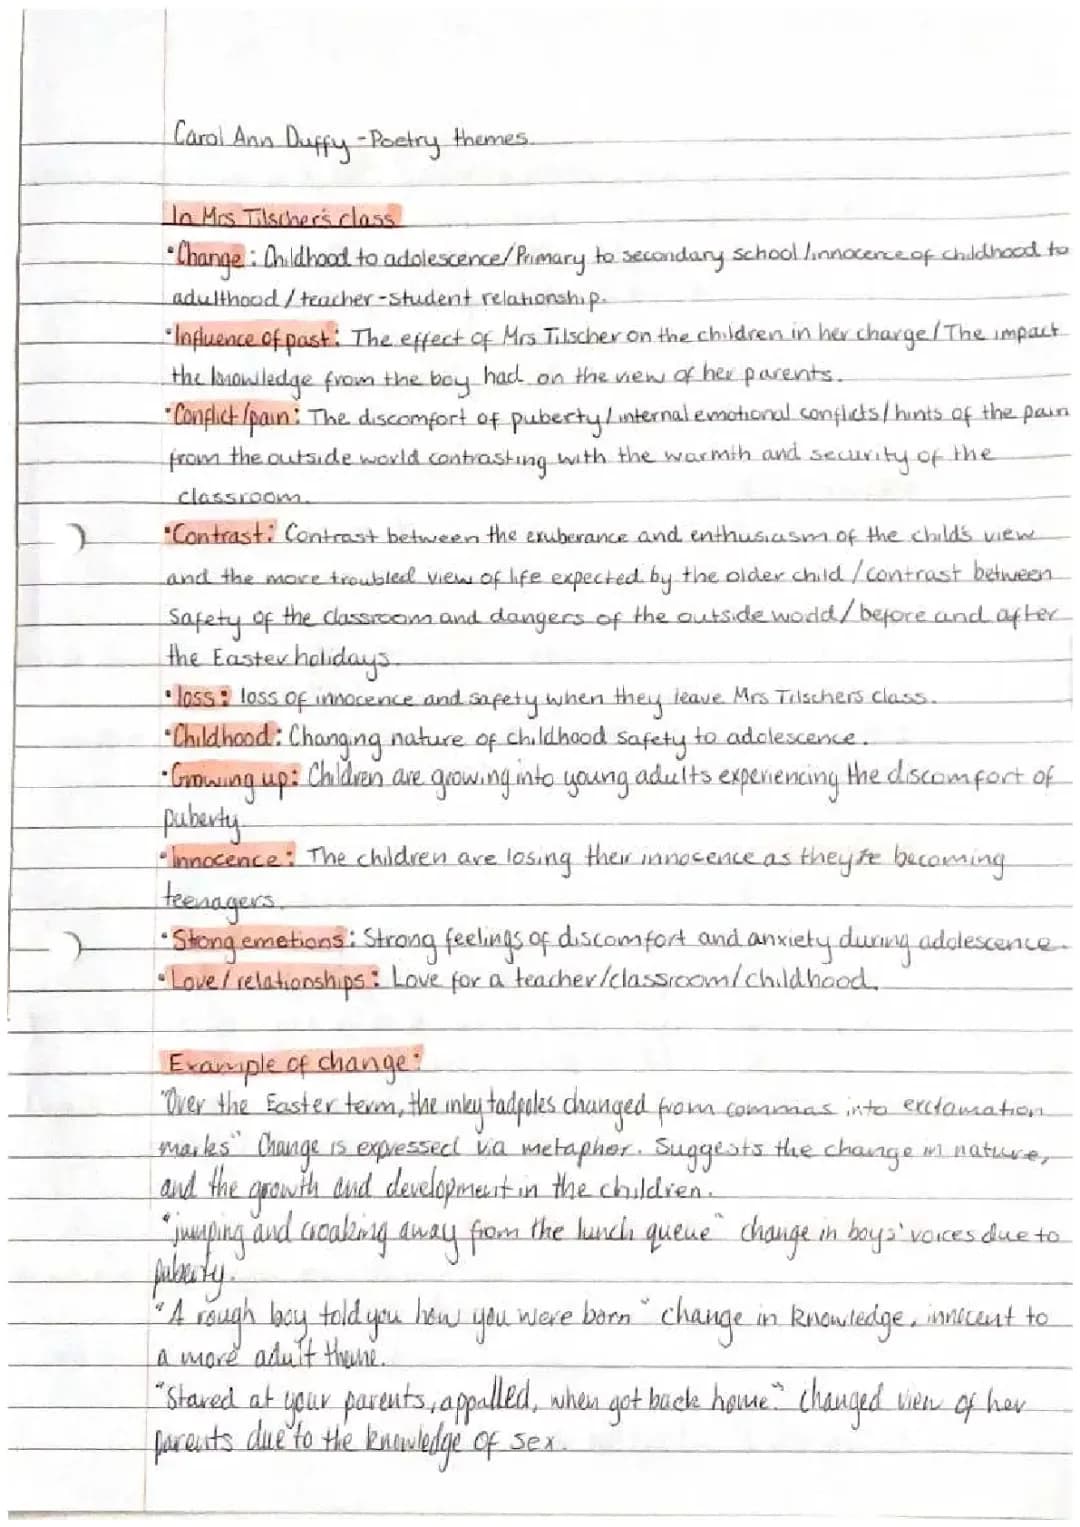 Carol Ann Duffy - Poetry themes.
In Mrs Tilscher's class
•Change: Childhood to adolescence/Primary to secondary school/innocence of childhood to
adulthood/teacher-student relationship.
•Influence of past: The effect of Mrs Tilscher on the children in her charge/The impact
the knowledge from the boy had on the view of her parents.
•Conflict/pain: The discomfort of puberty/internal emotional conflicts/hints of the pain
from the outside world contrasting with the warmth and security of the
classroom.
•Contrast: Contrast between the exuberance and enthusiasm of the child's view
and the more troubled view of life expected by the older child/contrast between
Safety of the classroom and dangers of the outside world/before and after
the Easter holidays.
•loss: loss of innocence and safety when they leave Mrs Tilschers class.
•Childhood: Changing nature of childhood safety to adolescence.
•Growing up: Children are growing into young adults experiencing the discomfort of
puberty.
•Innocence: The children are losing their innocence as they're becoming
teenagers.
•Strong emotions: Strong feelings of discomfort and anxiety during adolescence.
•Love/relationships: Love for a teacher/classroom/childhood.
Example of change:
"Over the Easter term, the inky tadpoles changed from commas into exclamation
marks" Change is expressed via metaphor. Suggests the change in nature,
and the growth and development in the children.
"jumping and croaking away from the lunch queue" change in boys' voices due to
puberty.
"A rough boy told you how you were born" change in knowledge, innocent to
a more adult theme.
"Stared at your parents, appalled, when got back home." changed view of her
parents due to the knowledge of sex.